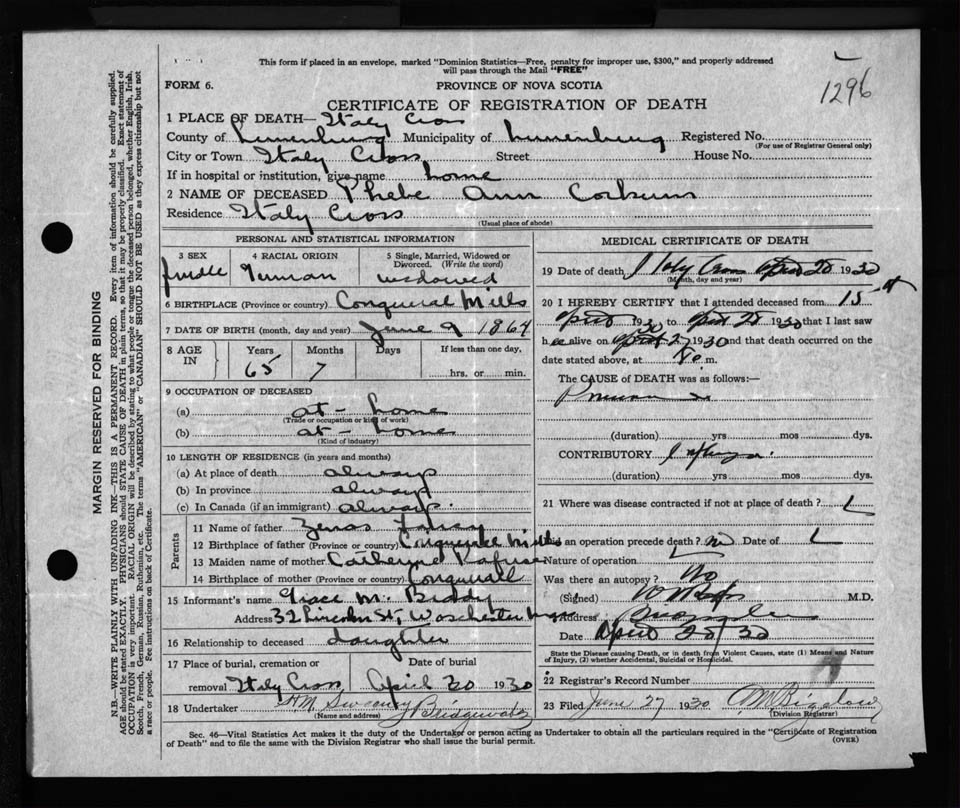 This form if placed in an envelope, marked "Dominion Statistics—Free, penalty for improper use, $300," and properly addressed
will pass through the Mail "FREE"
1296
FORM 6.
PROVINCE OF NOVA SCOTIA
CERTIFICATE OF REGISTRATION OF DEATH
1 PLACE OF DEATH— Italy Cross
County of Lunenburg Municipality of Lunenburg Registered No.
(For use of Registrar General only)
City or Town Italy Cross Street House No.
If in hospital or institution, give name home
2 NAME OF DECEASED Phebe Ann Corkum
Residence Italy Cross
(Usual place of abode)
PERSONAL AND STATISTICAL INFORMATION
3 SEX 4 RACIAL ORIGIN 5 Single, Married, Widowed or
Divorced. (Write the word)
German widowed
6 BIRTHPLACE (Province or country) Conquerall Mills
7 DATE OF BIRTH (month, day and year) June 9 1864
8 AGE IN Years Months Days If less than one day,
65 7 hrs. or min.
9 OCCUPATION OF DECEASED
(a) at - home
(Trade or occupation or kind of work)
(b) at - home
(Kind of industry)
10 LENGTH OF RESIDENCE (in years and months)
(a) At place of death always
(b) In province always
(c) In Canada (if an immigrant) always
Parents
11 Name of father Zenas
12 Birthplace of father (Province or country) Conquerall Mills
13 Maiden name of mother Catheryne
14 Birthplace of mother (Province or country) Conquerall
15 Informant's name Grace M. Biddy
Address 32 Lincoln St, Worchester
16 Relationship to deceased daughter
17 Place of burial, cremation or Date of burial
removal Italy Cross April 30 1930
18 Undertaker HM Sweeny Bridgewater
(Name and address)
MEDICAL CERTIFICATE OF DEATH
19 Date of death Italy Cross April 28 1930
(Month, day and year)
20 I HEREBY CERTIFY that I attended deceased from 15
April 1930 to April 28 1930 that I last saw
her alive on April 27 1930 and that death occurred on the
date stated above, at m.
The CAUSE of DEATH was as follows:—
(duration) yrs mos dys.
CONTRIBUTORY
(duration) yrs. mos. dys.
21 Where was disease contracted if not at place of death?
Did an operation precede death? no Date of
Nature of operation
Was there an autopsy? No
(Signed) M.D.
Address
Date April 28 30
State the Disease causing Death, or in death from Violent Causes, state (1) Means and Nature
of Injury, (2) whether Accidental, Suicidal or Homicidal.
22 Registrar's Record Number
23 Filed June 27 1930
(Division Registrar)
Sec. 46—Vital Statistics Act makes it the duty of the Undertaker or person acting as Undertaker to obtain all the particulars required in the "Certificate of Registration
of Death" and to file the same with the Division Registrar who shall issue the burial permit.
(OVER)
MARGIN RESERVED FOR BINDING
N.B.—WRITE PLAINLY WITH UNFADING INK—THIS IS A PERMANENT RECORD. Every item of information should be carefully supplied.
AGE should be stated EXACTLY. PHYSICIANS should STATE CAUSE OF DEATH in plain terms, so that it may be properly classified. Exact statement of
OCCUPATION is very important. RACIAL ORIGIN will be described by stating to what people or tongue the deceased person belonged, whether English, Irish,
Scotch, French, German, Russian, Ruthenian, etc. The terms "AMERICAN" or "CANADIAN" SHOULD NOT BE USED as they express citizenship but not
a race or people. See instructions on back of Certificate.